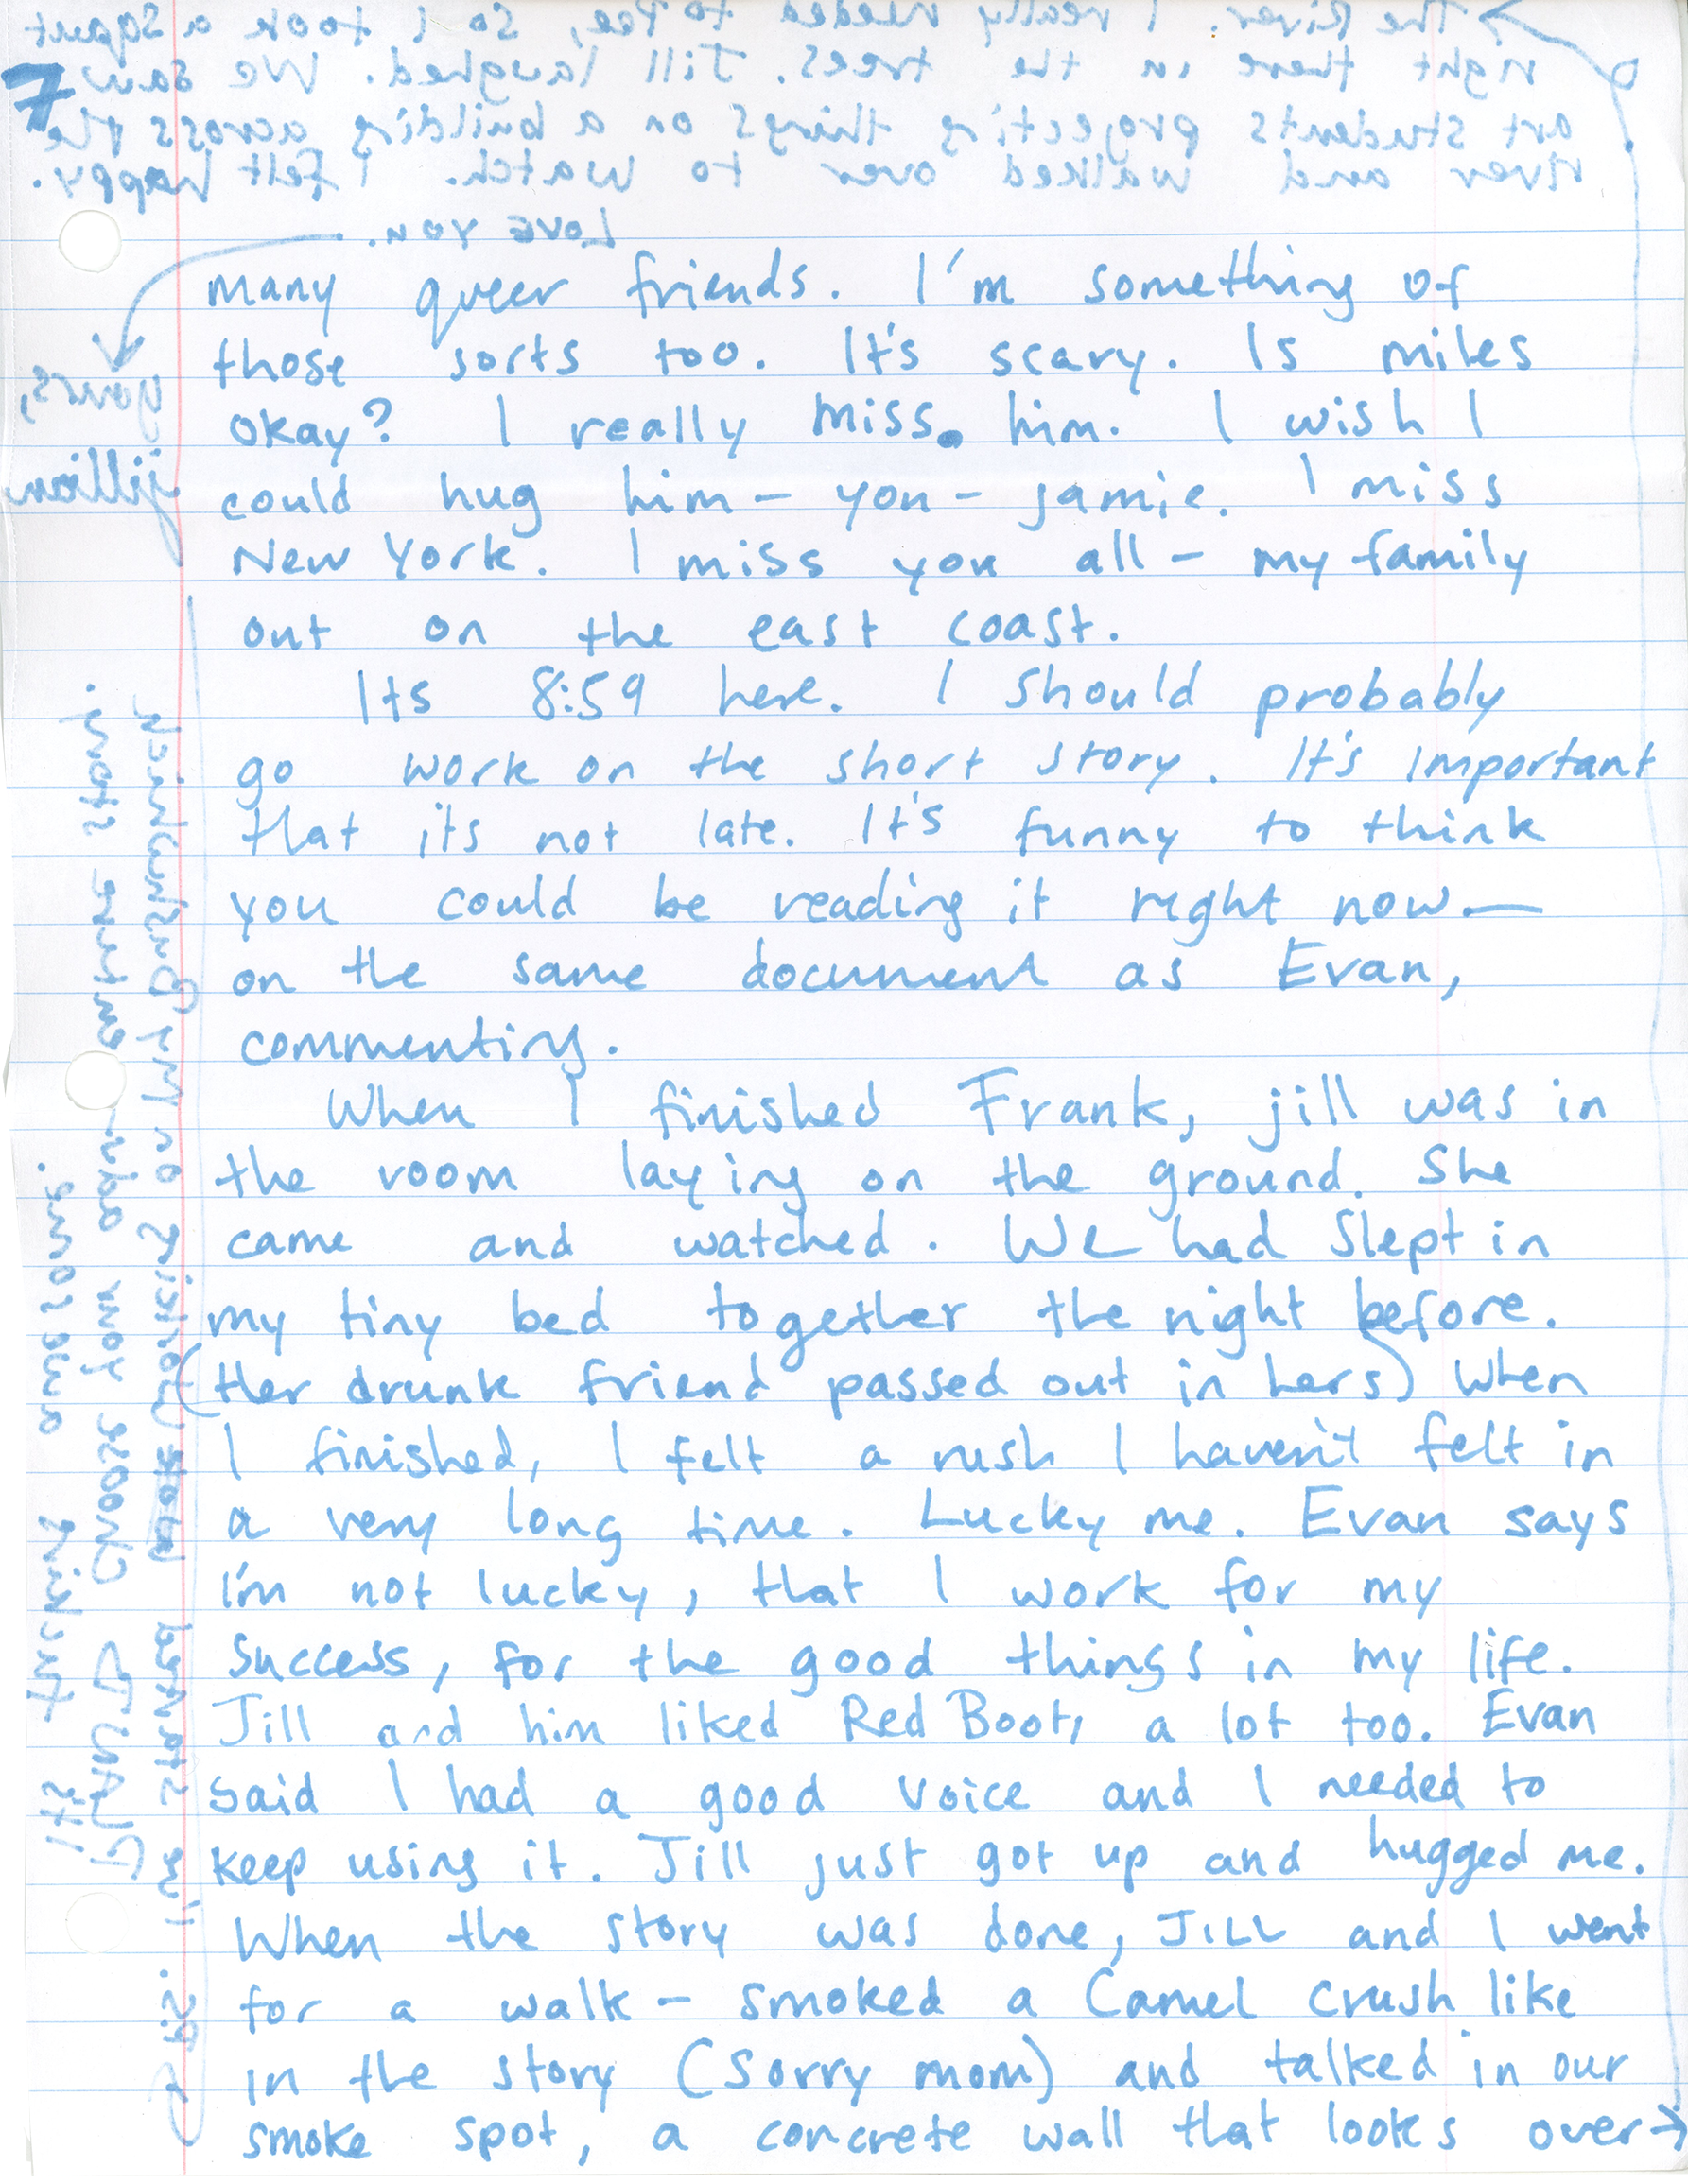 7
many queer friends. I'm something of
those sorts too. It's scary. Is miles
okay? I really miss. him. I wish I
could hug him - you - jamie. I miss
New York. I miss you all - my family
out on the east coast.
Its 8:59 here. I should probably
go work on the short story. It's important
that it's not late. It's funny to think
you could be reading it right now—
on the same document as Evan,
commenting.
When I finished Frank, jill was in
the room laying on the ground. She
came and watched. We had slept in
my tiny bed together the night before.
(Her drunk friend passed out in hers) When
I finished, I felt a rush I haven't felt in
a very long time. Lucky me. Evan says
i'm not lucky, that I work for my
success, for the good things in my life.
Jill and him liked Red Boots a lot too. Evan
said I had a good voice and I needed to
keep using it. Jill just got up and hugged me.
When the story was done, JILL and I went
for a walk - smoked a Camel crush like
in the story (sorry mom) and talked in our
smoke spot, a concrete wall that looks over →
The River. I really needed to pee, so I took a squat
right there in the trees. Jill laughed. We saw
art students projecting things on a building across the
river and walked over to watch. I felt happy.
Love you.
yours,
jillian
PS. started on my
choose you entire story.
It's